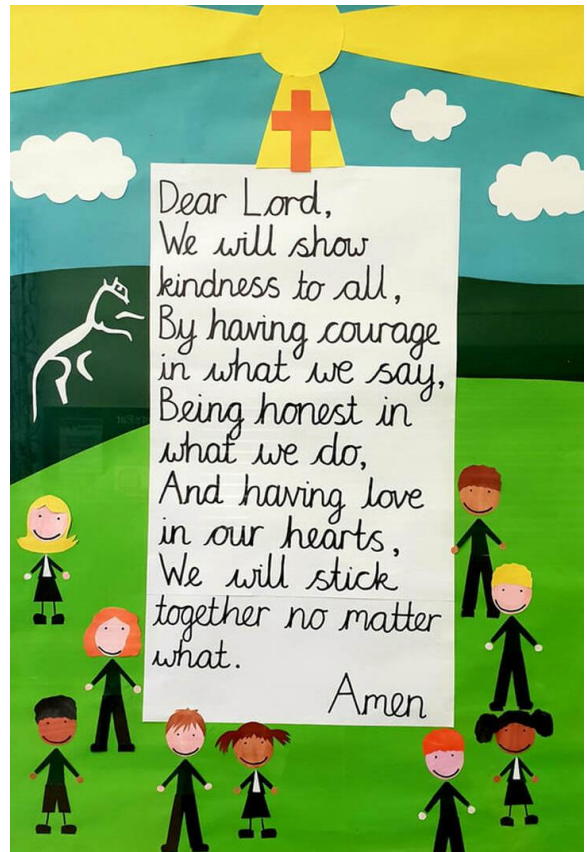 Dear Lord,
We will show
kindness to all,
By having courage
in what we say,
Being honest in
what we do,
And having love
in our hearts,
We will stick
together no matter
what.
Amen